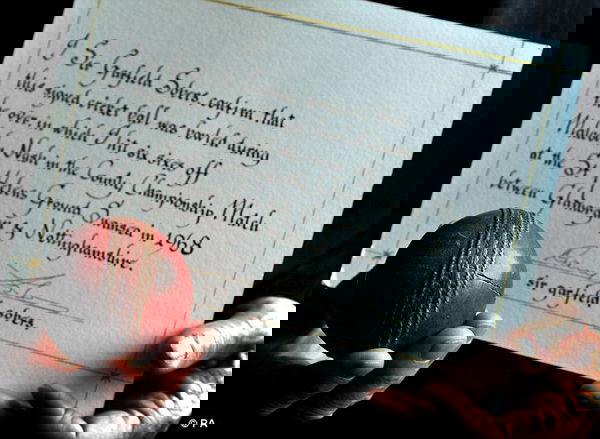 I Sir Garfield Sobers, confirm that
this signed cricket ball was bowled during
the over in which I hit six sixes off
Malcolm Nash in the County Championship Match
at the St Helen's Ground Swansea in 1968
between Glamorgan & Nottinghamshire.
Sir Garfield Sobers.
© PA